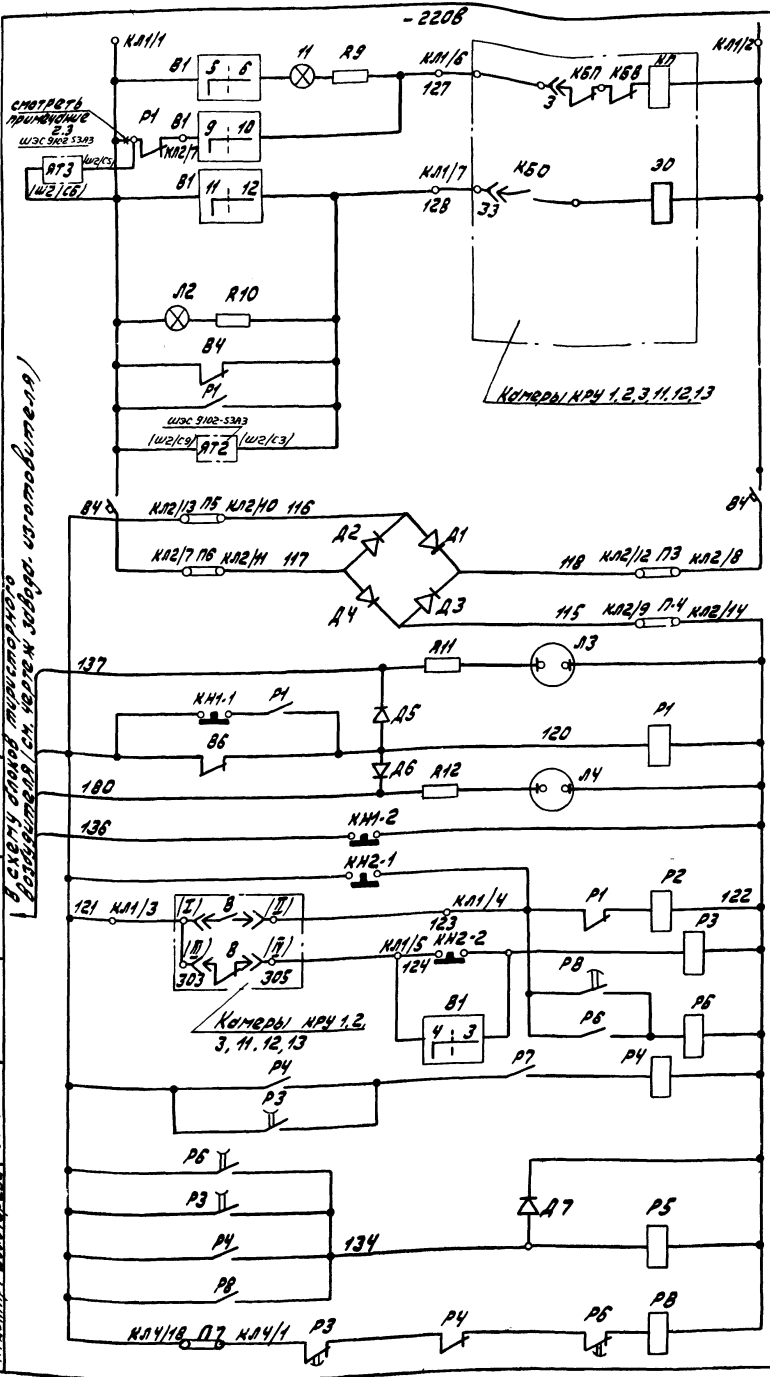 -220В
КЛ1/1
В1
5 6
Л1
R9
КЛ1/6
127
3
КБП
КБВ
КП
КЛ1/2
смотреть
примечание
2.3
ШЭС 9102 53А3
Р1
В1
КЛ2/7
9 10
ЯТ3
/Ш2/С5/
/Ш2/С6/
В1
11 12
КЛ1/7
128
33
КБО
ЭО
Л2
R10
В4
Р1
ШЭС 9102-53А3
/Ш2/С9/
ЯТ2
/Ш2/С3/
Камеры КРУ 1,2,3,11,12,13
В4
КЛ2/13 П5 КЛ2/10 116
КЛ2/7 П6 КЛ2/11 117
Д2
Д1
Д4
Д3
118 КЛ2/12 П3 КЛ2/8
115 КЛ2/9 П.4 КЛ2/14
В4
В схему блоков тиристорного
возбудителя (см. чертеж завода-изготовителя)
137
R11
Л3
КН1-1
Р1
Д5
В6
120
Р1
Д6
180
R12
Л4
136
КН1-2
КН2-1
121 КЛ1/3
(I)
В
(II)
123
КЛ1/4
Р1
Р2
122
(III)
303
В
(IV)
305
КЛ1/5
124
КН2-2
Р3
В1
4 3
Р8
Р6
Р6
Камеры КРУ 1,2,
3, 11, 12, 13
Р4
Р3
Р7
Р4
Р6
Р3
Р4
134
Р8
Д7
Р5
КЛ4/18 П7 КЛ4/1
Р3
Р4
Р6
Р8